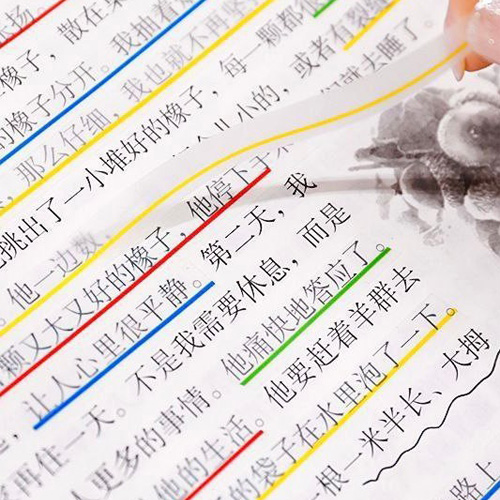 橡子，散在桌
的橡子分开。我抽着烟
，那么仔细，我也就不再坚
挑出了一小堆好的橡子，每一颗都很
他一边数，个儿小的，或者有裂缝
颗又大又好的橡子，他停下手来
让人心里很平静。第二天，我
再住一天。不是我需要休息，而是
更多的事情。他痛快地答应了。
他的生活。他要赶着羊群去
的袋子在水里泡了一下。
根一米半长、大拇
路上